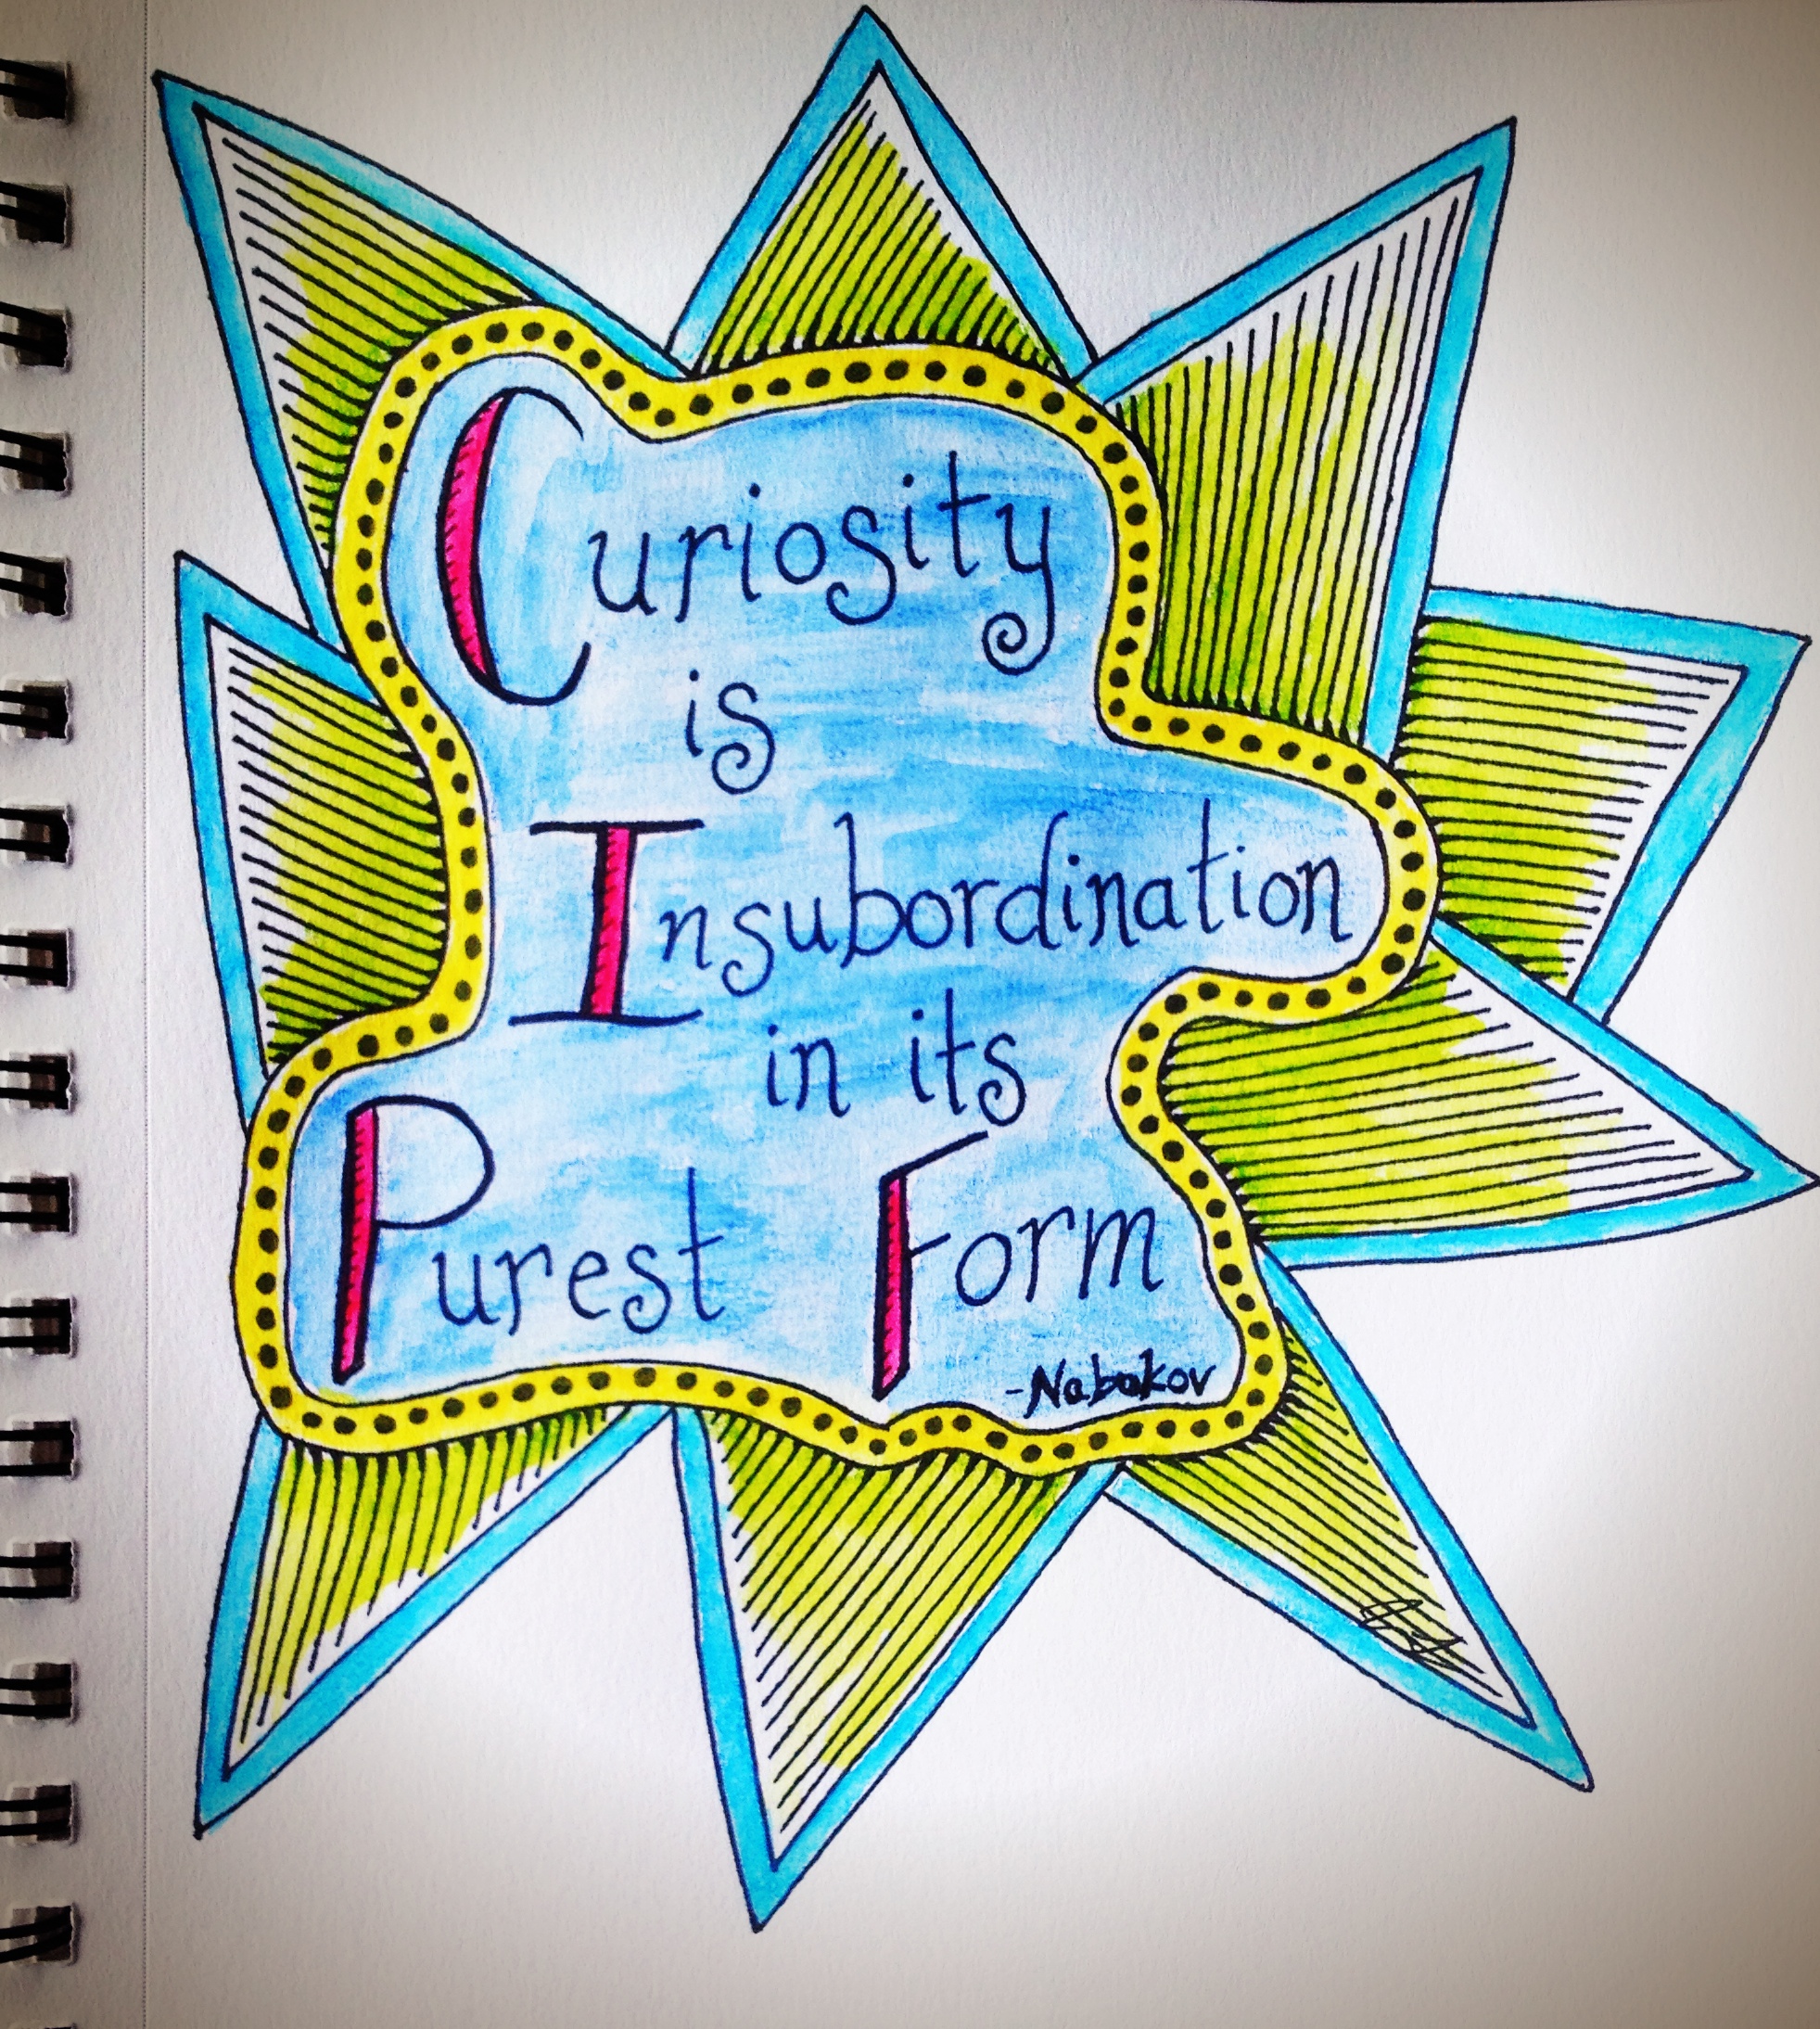 Curiosity
is
Insubordination
in its
Purest Form
-Nabokov